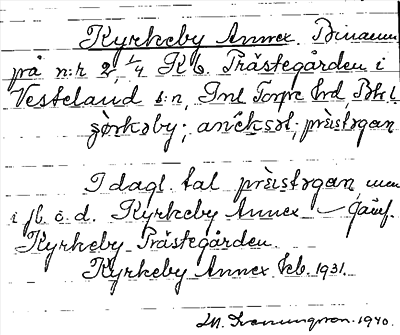 Kyrkeby Annex. Binamn
på n:r 2, 1/4 Kb. Prästegården i
Vesteland s:n, Inl Torpe hrd, Bhl.
ɟørkəby; anĕksəl; prèistəgan
I dagl. tal prèistəgan, men
i jb. o. d. Kyrkeby Annex – Jämf.
Kyrkeby Prästegården.
Kyrkeby Annex. kb. 1931.
1940.